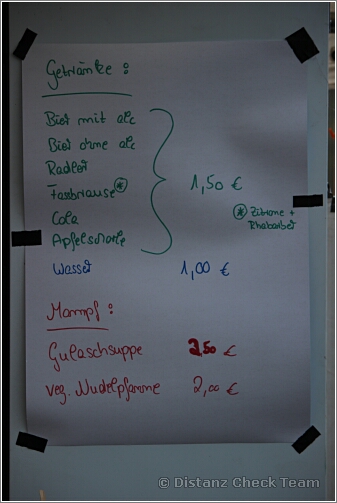 Getränke :
Bier mit alc
Bier ohne alc
Radler
Fassbrause *
1,50 €
* Zitrone +
Rhabarber
Cola
Apfelschorle
Wasser 1,00 €
Mampf :
Gulaschsuppe 2,50 €
veg. Nudelpfanne 2,00 €
© Distanz Check Team